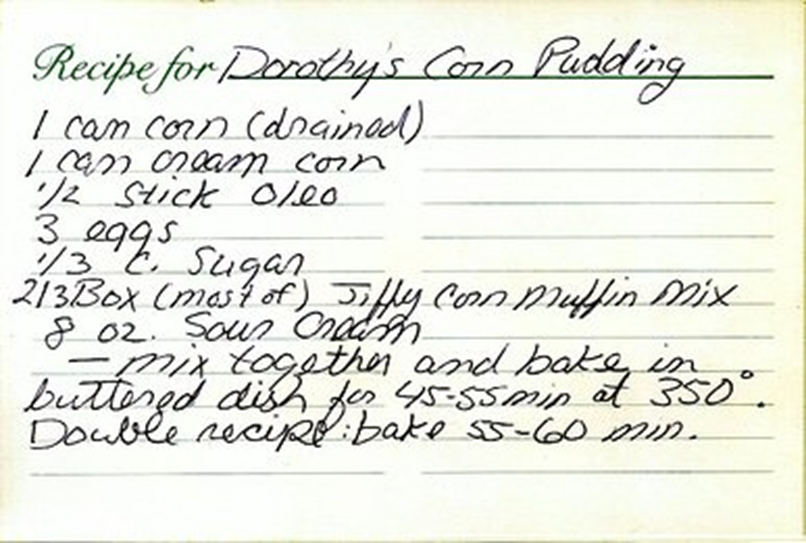 Recipe for Dorothy's Corn Pudding
1 can corn (drained)
1 can cream corn
1/2 stick oleo
3 eggs
1/3 c. Sugar
2/3 Box (most of) Jiffy Corn Muffin Mix
8 oz. Sour Cream
— mix together and bake in
buttered dish for 45-55min at 350°.
Double recipe: bake 55-60 min.